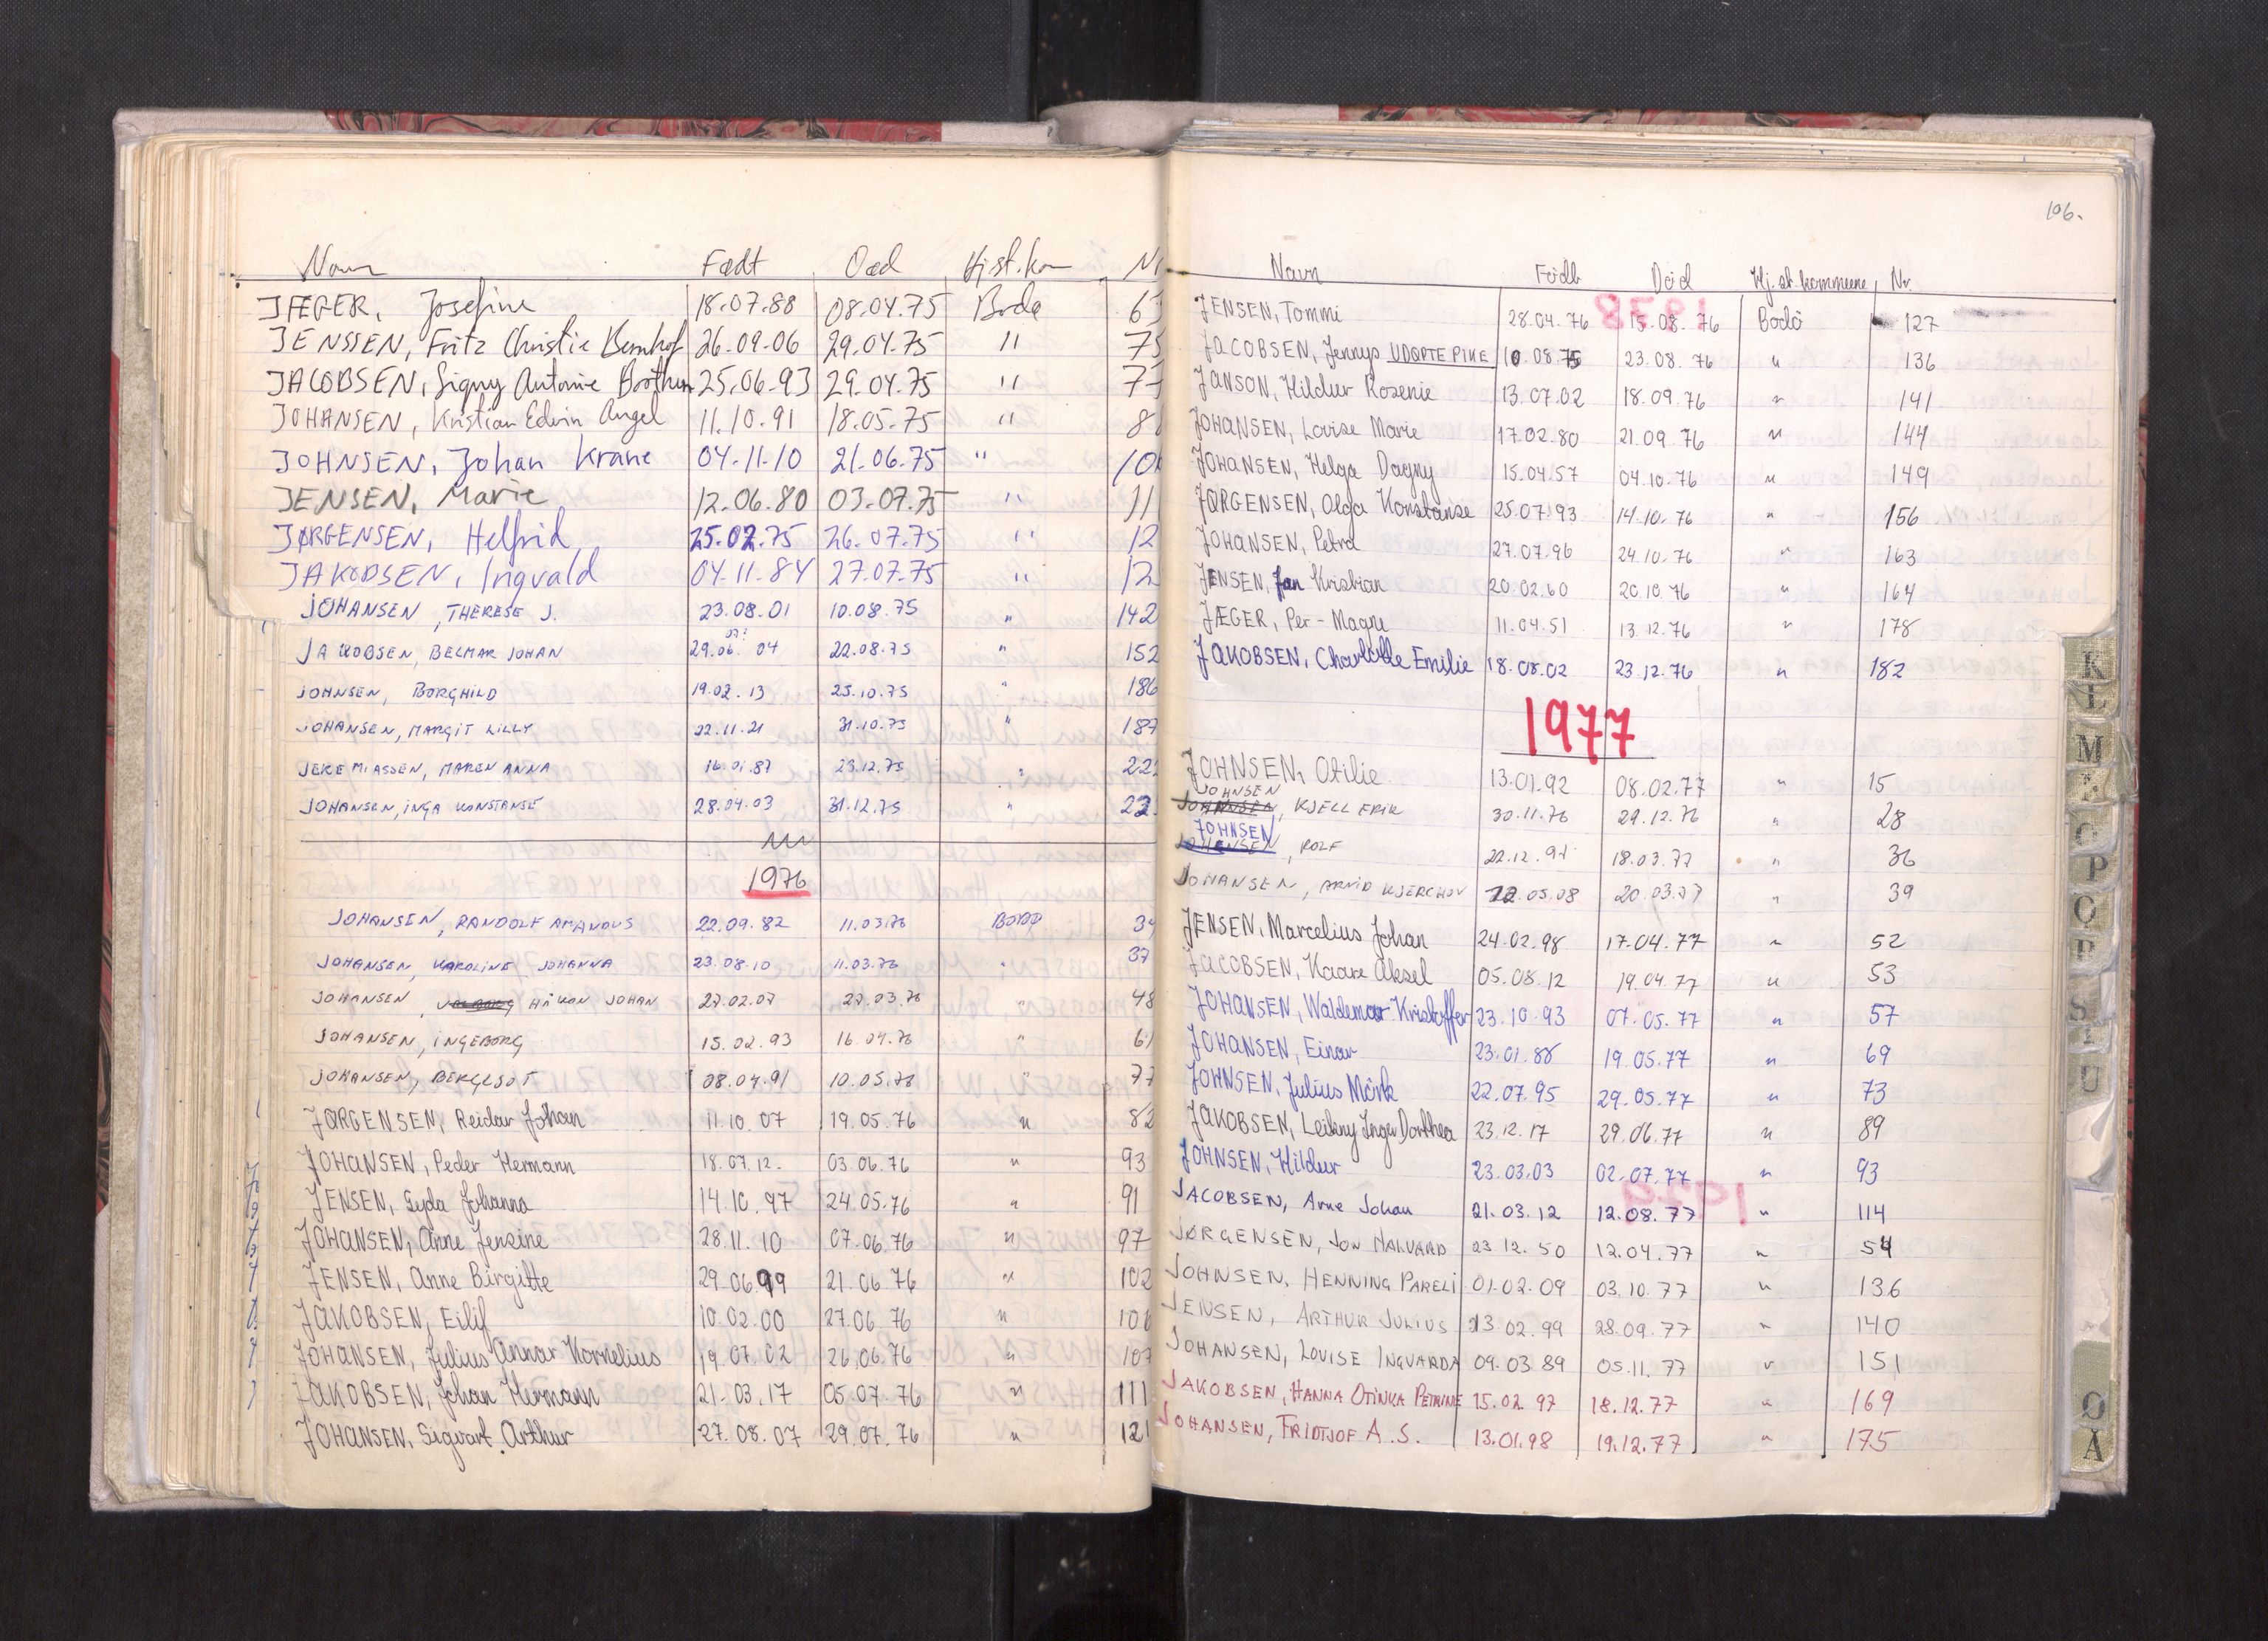 Navn Født Død Hjst.kom Nr
JÆGER, Josefine 18.07.88 08.04.75 Bodø 63
JENSSEN, Fritz Christie Bernhof 26.09.06 29.04.75 " 75
JACOBSEN, Signy Antonie 25.06.93 29.04.75 " 77
JOHANSEN, Kristian Edvin Angel 11.10.91 18.05.75 " 8
JOHNSEN, Johan Krane 04.11.10 21.06.75 " 10
JENSEN, Marie 12.06.80 03.07.75 " 11
JØRGENSEN, Helfrid 25.02.75 26.07.75 " 12
JAKOBSEN, Ingvald 04.11.84 27.07.75 " 12
JOHANSEN, THERESE J. 23.08.01 10.08.75 " 142
JAKOBSEN, BELMAR JOHAN 29.06.04 22.08.75 " 152
JOHNSEN, BORGHILD 19.02.13 25.10.75 " 186
JOHANSEN, MARGIT LILLY 22.11.21 31.10.75 " 187
JEREMIASSEN, MAREN ANNA 16.01.87 23.12.75 " 22
JOHANSEN, INGA KONSTANSE 28.04.03 31.12.75 " 22
1976
JOHANSEN, RANDOLF AMANDUS 22.09.82 11.03.76 BODØ 34
JOHANSEN, KAROLINE JOHANNA 23.08.10 11.03.76 " 37
JOHANSEN, HÅKON JOHAN 27.02.07 27.03.76 " 48
JOHANSEN, INGEBORG 15.02.93 16.04.76 " 61
JOHANSEN, BERGLJOT 08.04.91 10.05.76 " 77
JØRGENSEN, Reidar Johan 11.10.07 19.05.76 " 82
JOHANSEN, Peder Hermann 18.07.12. 03.06.76 " 93
JENSEN, Lyda Johanna 14.10.97 24.05.76 " 91
JOHANSEN, Anne Jensine 28.11.10 07.06.76 " 97
JENSEN, Anne Birgitte 29.06.99 21.06.76 " 102
JAKOBSEN, Eilif 10.02.00 27.06.76 " 106
JOHANSEN, Julius Annar Kornelius 19.07.02 26.06.76 " 107
JAKOBSEN, Johan Hermann 21.03.17 05.07.76 " 111
JOHANSEN, Sigvart Arthur 27.08.07 29.07.76 " 121
106.
Navn Född Död Hj.st.kommune Nr.
JENSEN, Tommi 28.04.76 15.08.76 Bodö 127
JACOBSEN, Jennys UDØPTE PIKE 10.08.75 23.08.76 " 136
JANSON, Hildur Rosenie 13.07.02 18.09.76 " 141
JOHANSEN, Lovise Marie 17.02.80 21.09.76 " 144
JOHANSEN, Helga Dagny 15.04.57 04.10.76 " 149
JØRGENSEN, Olga Konstanse 25.07.93 14.10.76 " 156
JOHANSEN, Petra 27.07.96 24.10.76 " 163
JENSEN, Jan Kristian 20.02.60 20.10.76 " 164
JÆGER, Per-Magne 11.04.51 13.12.76 " 178
JAKOBSEN, Charlotte Emilie 18.08.02 23.12.76 " 182
1977
JOHNSEN, Otilie 13.01.92 08.02.77 " 15
JOHNSEN
JOHANSEN, KJELL ERIK 30.11.76 29.12.76 " 28
JOHNSEN
JOHANSEN, ROLF 22.12.91 18.03.77 " 36
JOHANSEN, ARVID KJERCHOV 22.05.08 20.03.77 " 39
JENSEN, Marcelius Johan 24.02.98 17.04.77 " 52
JACOBSEN, Kaare Aksel 05.08.12 19.04.77 " 53
JOHANSEN, Waldemar Kristoffer 23.10.93 07.05.77 " 57
JOHANSEN, Einar 23.01.88 19.05.77 " 69
JOHNSEN, Julius Mörk 22.07.95 29.05.77 " 73
JAKOBSEN, Leikny Inger Dorthea 23.12.17 29.06.77 " 89
JOHNSEN, Hildur 23.03.03 02.07.77 " 93
JACOBSEN, Arne Johan 21.03.12 12.08.77 " 114
JØRGENSEN, JON HALVARD 23.12.50 12.04.77 " 54
JOHNSEN, HENNING PARELI 01.02.09 03.10.77 " 136
JENSEN, ARTHUR JULIUS 13.02.99 28.09.77 " 140
JOHANSEN, LOVISE INGVARDA 09.03.89 05.11.77 " 151
JAKOBSEN, HANNA OTINKA PETRINE 15.02.97 18.12.77 " 169
JOHANSEN, FRIDTJOF A.S. 13.01.98 19.12.77 " 175
K
L
M
N
O
P
Q
R
S
T
U
Ø
Å